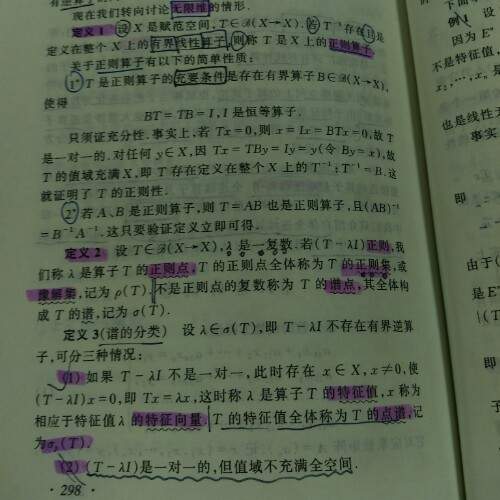 现在我们转向讨论无限维的情形.
定义 1 设 X 是赋范空间, T∈𝓑(X→X). 若 T⁻¹存在且是
定义在整个 X 上的有界线性算子,则称 T 是 X 上的正则算子.
关于正则算子有以下的简单性质:
1° T 是正则算子的充要条件是存在有界算子 B∈𝓑(X→X),
使得
BT=TB=I, I 是恒等算子.
只须证充分性.事实上,若 Tx=0,则 x=Ix=BTx=0,故 T
是一对一的.对任何 y∈X,因 Tx=TBy=Iy=y(令 By=x),故
T 的值域充满 X,即 T 存在定义在整个 X 上的 T⁻¹; T⁻¹=B.这
就证明了 T 的正则性.
2° 若 A、B 是正则算子,则 T=AB 也是正则算子,且(AB)⁻¹
=B⁻¹A⁻¹.这只要验证定义立即可得.
定义 2 设 T∈𝓑(X→X), λ 是一复数.若(T-λI)正则,我
们称 λ 是算子 T 的正则点, T 的正则点全体称为 T 的正则集,或
豫解集,记为 ρ(T).不是正则点的复数称为 T 的谱点,其全体构
成 T 的谱,记为 σ(T).
定义 3(谱的分类) 设 λ∈σ(T),即 T-λI 不存在有界逆算
子,可分三种情况:
(1) 如果 T-λI 不是一对一,此时存在 x∈X, x≠0,使
(T-λI)x=0,即 Tx=λx,这时称 λ 是算子 T 的特征值, x 称为
相应于特征值 λ 的特征向量. T 的特征值全体称为 T 的点谱,记
为 σₚ(T).
(2) (T-λI)是一对一的,但值域不充满全空间.
· 298 ·
设
因为 E"
不是特征值,
也是线性
事实
即
由于(
是 E"
|(T
即